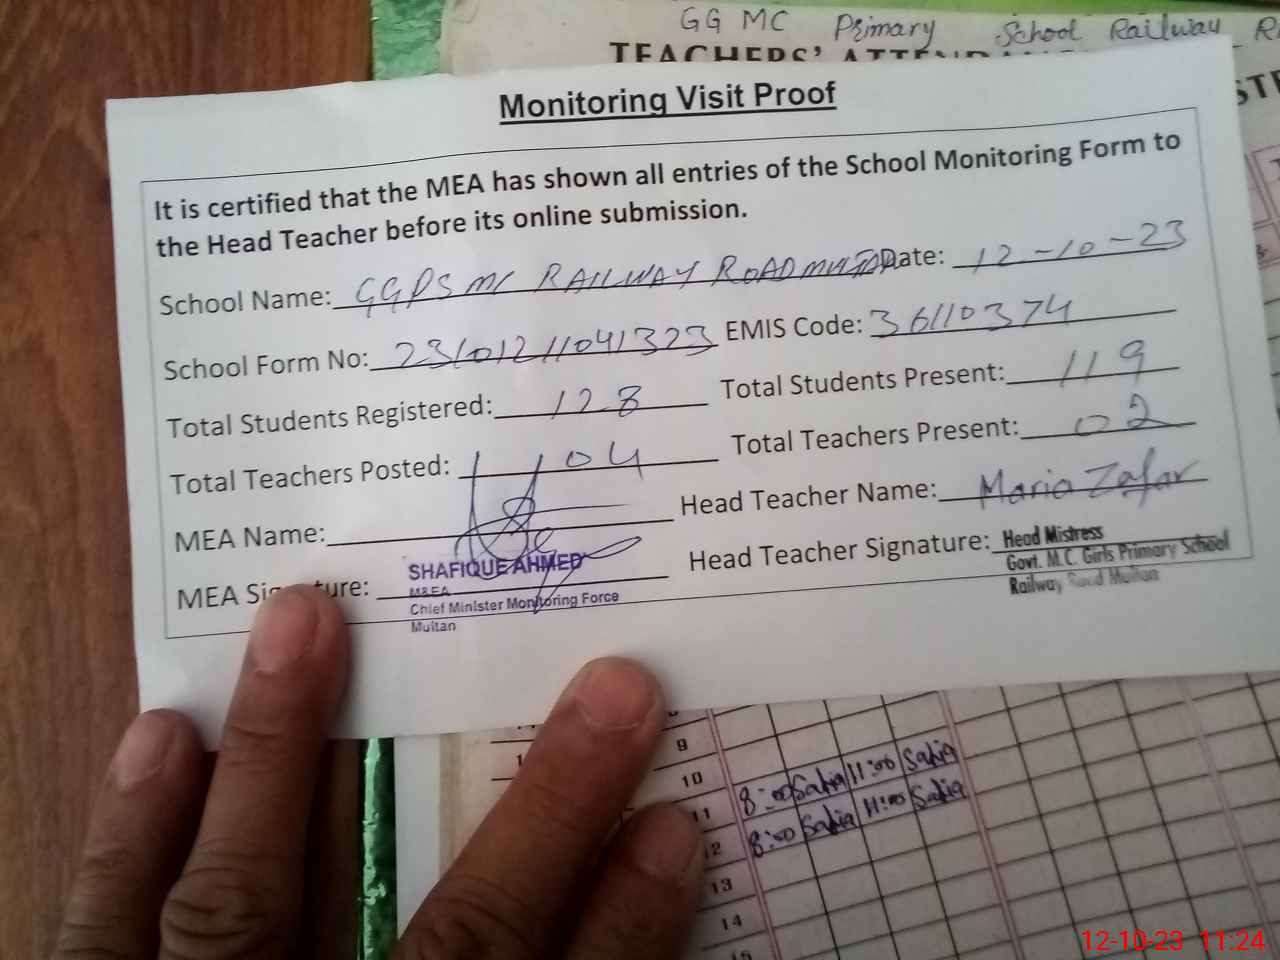 GG MC Primary School Railway
TEACHERS'
Monitoring Visit Proof
It is certified that the MEA has shown all entries of the School Monitoring Form to
the Head Teacher before its online submission.
School Name: GGPS MC RAILWAY ROAD MULTAN Date: 12-10-23
School Form No: 2310121041323 EMIS Code: 36110374
Total Students Registered: 128 Total Students Present: 119
Total Teachers Posted: 04 Total Teachers Present: 02
MEA Name: Head Teacher Name: Maria Zafar
MEA Signature: Head Teacher Signature:
SHAFIQUE AHMED
M&EA
Chief Minister Monitoring Force
Multan
Head Mistress
Govt. M.C. Girls Primary School
Railway Road Multan
9
10
11 8:00 Safia 11:00 Safia
12 8:00 Safia 11:00 Safia
13
14
15
12-10-23 11:24